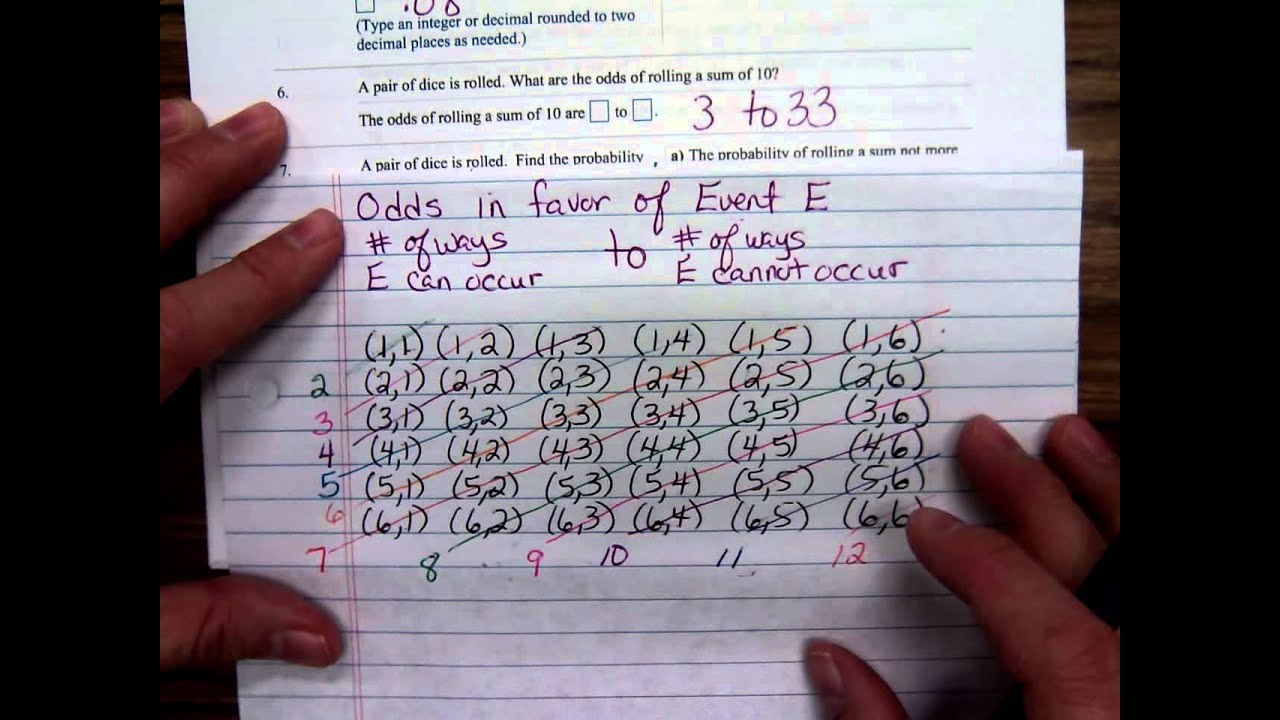 .08
(Type an integer or decimal rounded to two
decimal places as needed.)
6. A pair of dice is rolled. What are the odds of rolling a sum of 10?
The odds of rolling a sum of 10 are □ to □. 3 to 33
7. A pair of dice is rolled. Find the probability , a) The probability of rolling a sum not more
Odds in favor of Event E
# of ways to # of ways
E can occur E cannot occur
(1,1) (1,2) (1,3) (1,4) (1,5) (1,6)
2 (2,1) (2,2) (2,3) (2,4) (2,5) (2,6)
3 (3,1) (3,2) (3,3) (3,4) (3,5) (3,6)
4 (4,1) (4,2) (4,3) (4,4) (4,5) (4,6)
5 (5,1) (5,2) (5,3) (5,4) (5,5) (5,6)
6 (6,1) (6,2) (6,3) (6,4) (6,5) (6,6)
7 8 9 10 11 12